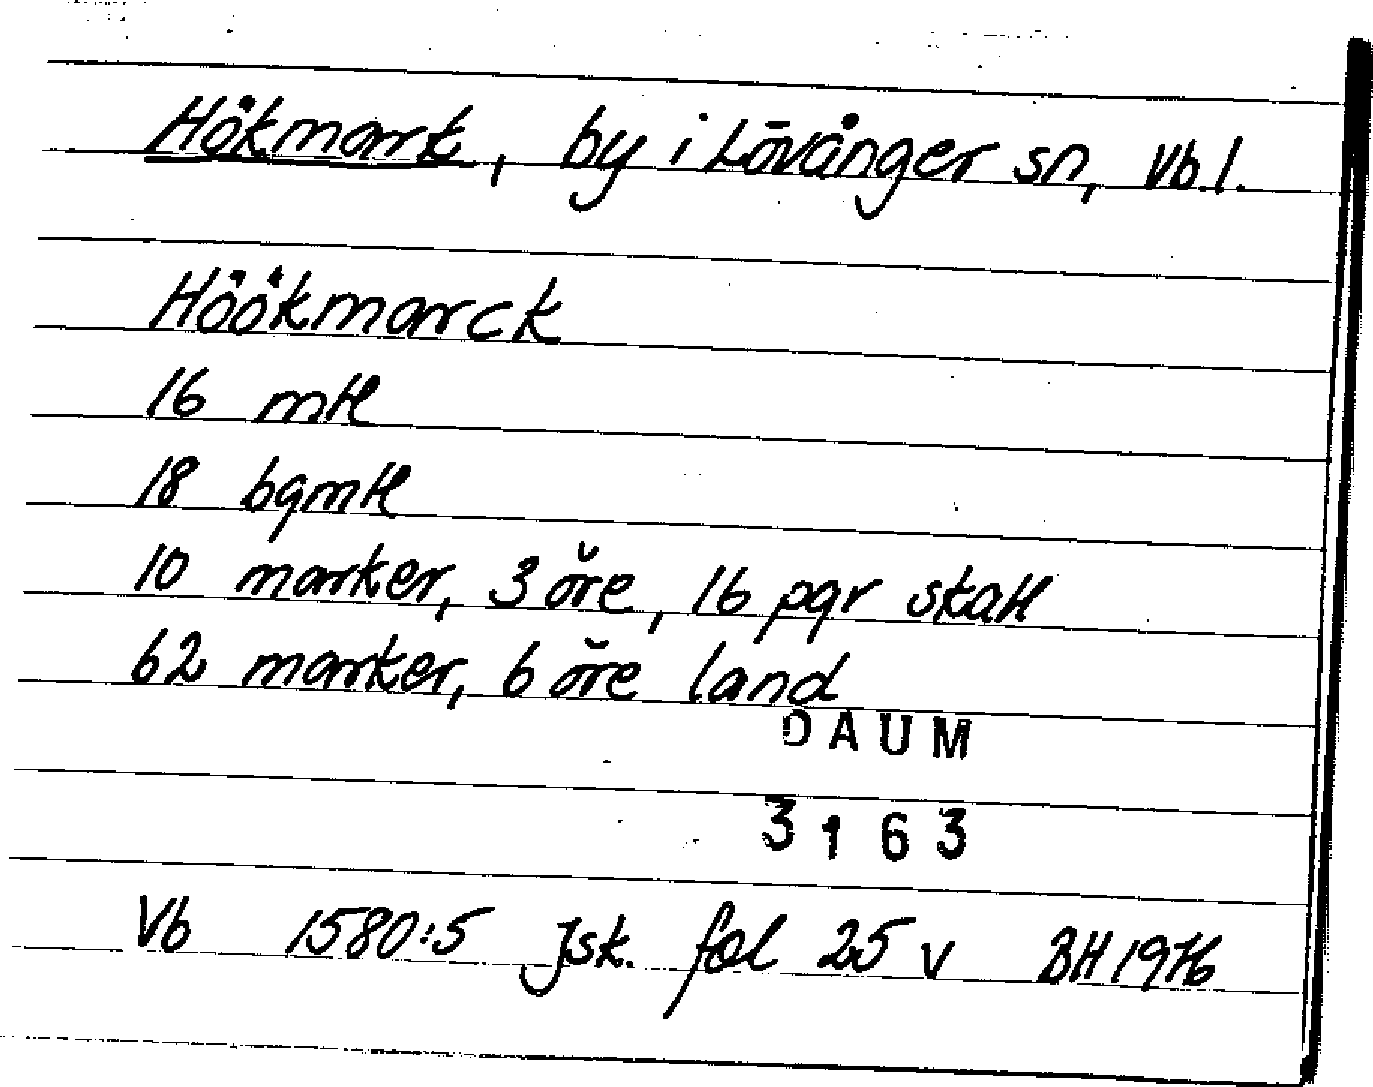 Hökmark, by i Lövånger sn, Vb.l.
Höökmarck
16 mtl
18 bgmtl
10 marker, 3 öre, 16 pgr skatt
62 marker, 6 öre land
DAUM
3163
Vb 1580:5 Jsk. fol 25 v BH 1976